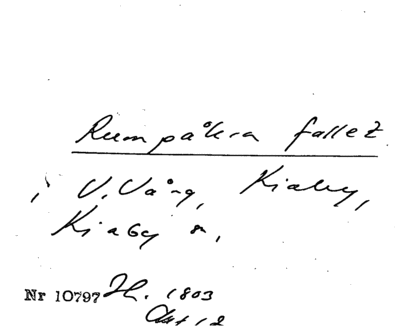 Rumpåkra fallet
i V. Vång, Kiaby,
Kiaby s,
Nr 10797 1803